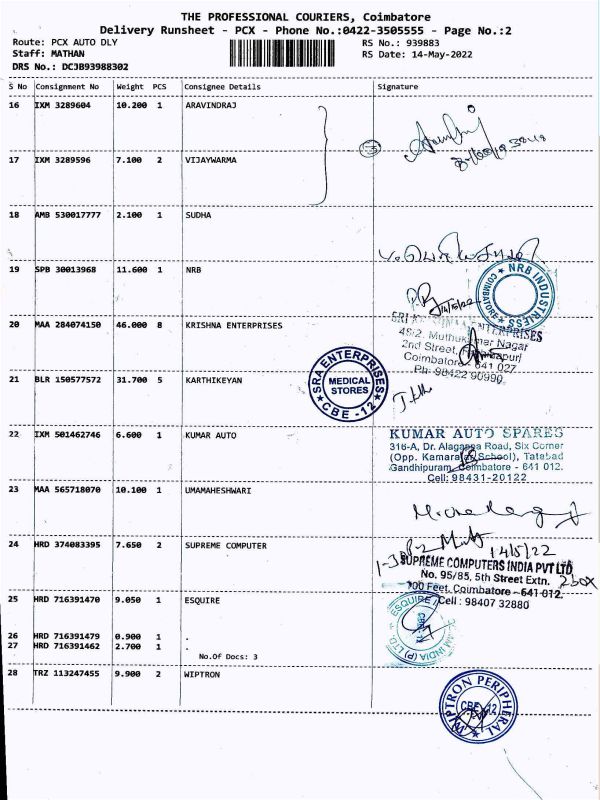 THE PROFESSIONAL COURIERS, Coimbatore
Delivery Runsheet - PCX - Phone No.:0422-3505555 - Page No.:2
Route: PCX AUTO DLY RS No.: 939883
Staff: MATHAN RS Date: 14-May-2022
DRS No.: DCJB93988302
S No Consignment No Weight PCS Consignee Details Signature
16 IXM 3289604 10.200 1 ARAVINDRAJ
3
17 IXM 3289596 7.100 2 VIJAYWARMA
18 AMB 530017777 2.100 1 SUDHA
19 SPB 30013968 11.600 1 NRB
NRB INDUSTRIESS
COIMBATORE
14/5/22
20 MAA 284074150 46.000 8 KRISHNA ENTERPRISES
ENTERPRISES
2nd Street,
Coimbatore - 641 027
Ph: 98422 90990
21 BLR 150577572 31.700 5 KARTHIKEYAN
SRA ENTERPRISES
MEDICAL
STORES
CBE -12
22 IXM 501462746 6.600 1 KUMAR AUTO
KUMAR AUTO SPARES
316-A, Dr. Alagappa Road, Six Corner
(Opp. Kamaraj School), Tatabad
Gandhipuram, Coimbatore - 641 012.
Cell: 98431-20122
23 MAA 565718070 10.100 1 UMAMAHESHWARI
24 HRD 374083395 7.650 2 SUPREME COMPUTER
14/5/22
SUPREME COMPUTERS INDIA PVT LTD
No. 95/85, 5th Street Extn. 2 box
100 Feet, Coimbatore - 641 012.
Cell : 98407 32880
25 HRD 716391470 9.050 1 ESQUIRE
ESQUIRE
INDIA (P) LTD
26 HRD 716391479 0.900 1 .
27 HRD 716391462 2.700 1 .
No.Of Docs: 3
28 TRZ 113247455 9.900 2 WIPTRON
WIPTRON PERIPHERAL
CBE-12